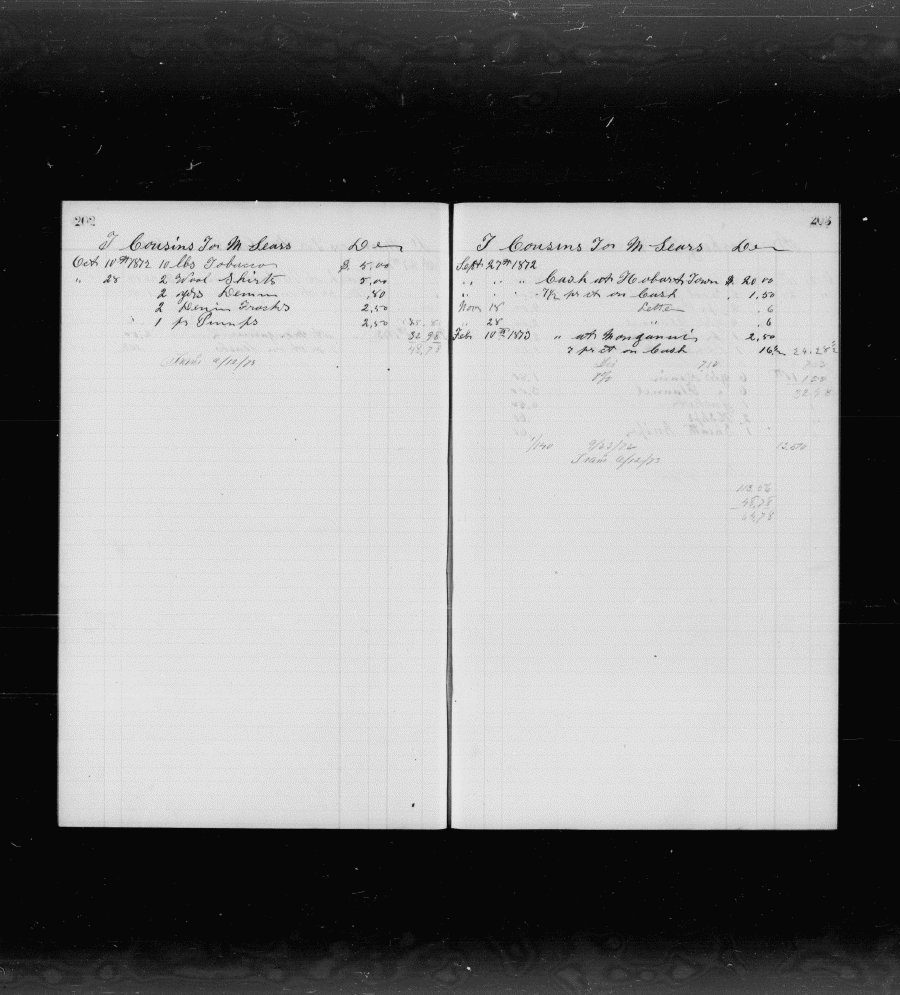 202
T Cousins For M Sears Der
Oct 10th 1872 10 lbs Tobacco $ 5,00
" 28 2 Wool Shirts 5,00
2 yds Denim ,80
2 Denim Frocks 2,50
1 pr Pumps 2,50
32 98
48,78
Trans 4/12/73
203
T Cousins For M Sears Der
Sept 27th 1872
" " " Cash at Hobart Town $ 20 00
7½ pr ct on Cash 1,50
Nov 18 Letter ,6
" 28 " ,6
Feb 10th 1873 " at Monganui 2,50
7 pr ct on Cash 24.28
9/23/72 1200
Trans 4/12/73
48,78